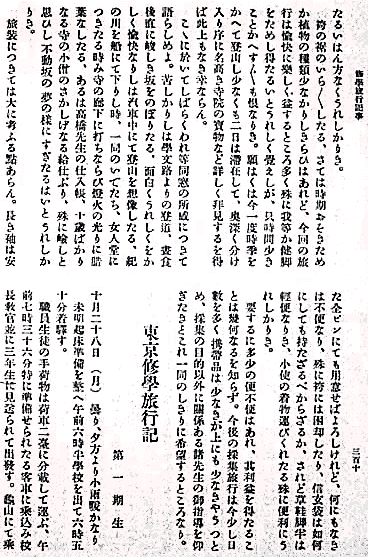 修學旅行記事
三百十
たるいはん方なくうれしかりき。
袴の裾のいろ〳〵したる、さては時期おそきため
か植物の種類少なかりしきらひはあれど、今回の旅
行は愉快に樂しく益するところ多く殊に我等が健脚
をためし得たるいとうれしく覺えしが、只時間少き
ことかへす〴〵も恨なりき。願くは今一度時季を
かへて登山し少なくも二日は滯在して、奥深く分け
入り序に名高き寺院の寶物など詳しく拜見するを得
ば此上もなき幸ならん。
こゝに於いてしばらくわれ等同窓の所感につきて
語らしめよ。苦しかりしは學文路よりの登道、晝食
後直に峻しき坂をのぼりたる、面白くうれしくをか
しく愉快なりしは汽車中にて登山を想像したる、紀
の川を船にて下りし時、一同のいでたち、女人堂に
つきたる時み寺の廊下に打ちならび燈火の光りに
葉したる、あるは高橋先生の仕入帳、十歳ばかり
なる寺の小僧のさかしげなる給仕ぶり、殊に嶮しと
思ひし不動坂の夢の樣にすぎたるはいとうれしか
りき。
旅裝につきては大に考ふる點あらん。長き袖は安
た全ピンにても用意せばよろしけれど、何にもなき
は不便なり、殊に袴には困却したり、信玄袋は如何
にしても持たざるべからざるか、されど草鞋脚半は
輕便なり、小使の着物運びくれたる殊に便利にう
れしかりき。
要するに多少の便不便はあれ、其利益を得たるこ
とは幾何なるを知らず。今後の採集旅行は今少し日
數を多く携帶品は少なきが上にも少なきやうつと
め、採集の目的以外に關係ある諸先生の御指導を仰
ぎたきとこれ一同のしきりに希望するところなり。
東京修學旅行記
第一期生
十月二十八日（月）曇り、夕方より小雨戲かなり
未明起床準備を整へ午前六時半學校を出て六時五
十分着驛す。
職員生徒の手荷物は荷車二臺に分載して運ぶ、午
前七時三十六分特に準備せられたる客車に乘込み校
長教官並に三年生に見送られて出發す。龜山にて乘